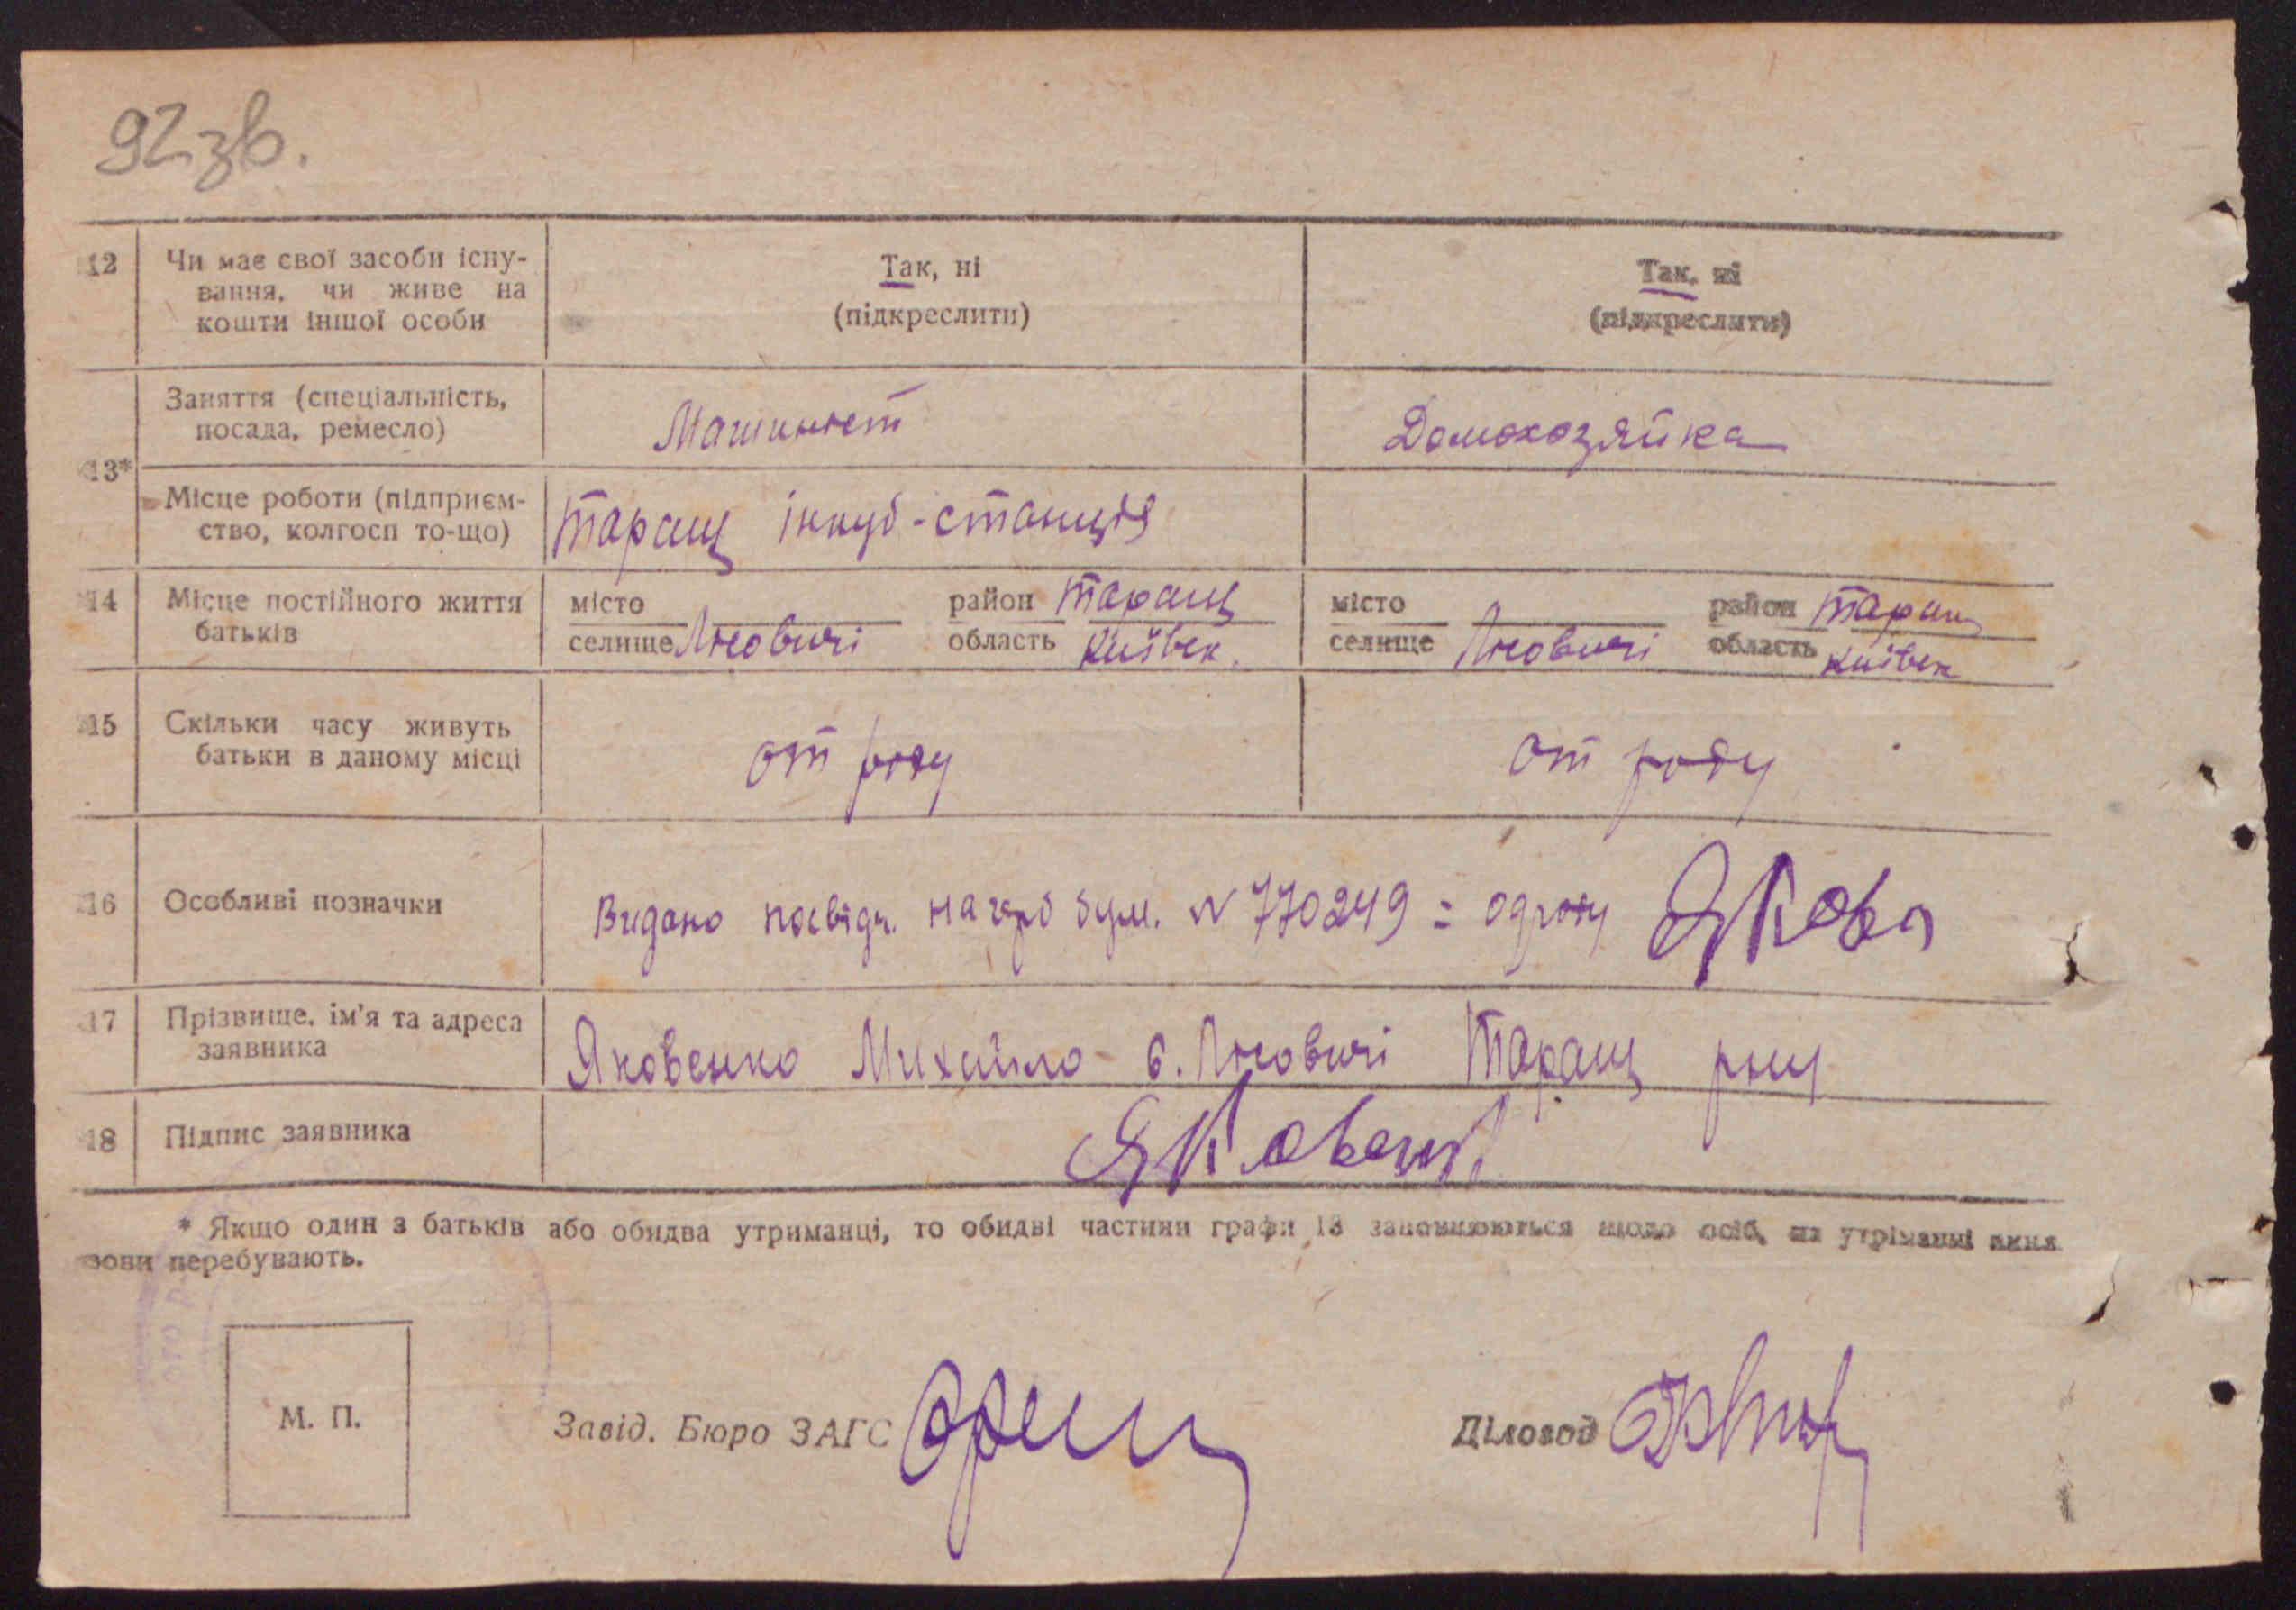 92 зв.
12 Чи має свої засоби існу- Так, ні Так, ні
вання, чи живе на (підкреслити) (підкреслити)
кошти іншої особи
Заняття (спеціальність, Машиніст Домохозяйка
посада, ремесло)
13*
Місце роботи (підприєм- Таращ інкуб-станція
ство, колгосп то-що)
14 Місце постійного життя місто район Таращ місто район Таращ
батьків селище область Київск. селище область Київск
15 Скільки часу живуть от роду от роду
батьки в даному місці
16 Особливі позначки Видано посвідч. на герб бум. N 770249 =
17 Прізвище, ім'я та адреса Яковенко Михайло с. Таращ р-ну
заявника
18 Підпис заявника
* Якщо один з батьків або обидва утриманці, то обидві частини графи 13 заповнюються щодо осіб, на утріманні яких
вони перебувають.
М. П. Завід. Бюро ЗАГС Діловод